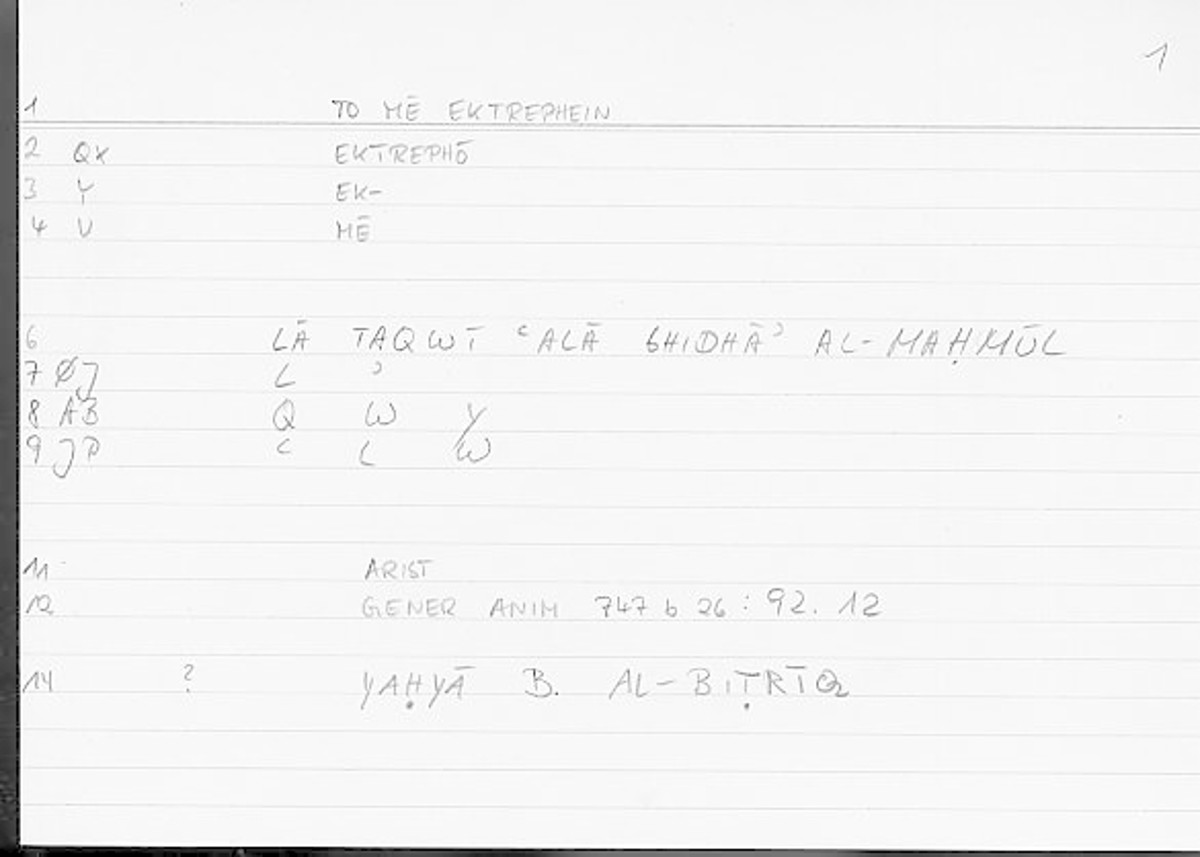 1
1 TO MĒ EKTREPHEIN
2 QX EKTREPHŌ
3 Y EK-
4 V MĒ
6 LĀ TAQWĪ ʿALĀ GHIDHĀʾ AL-MAḤMŪL
7 ØJ L ʾ
8 AB Q W Y
9 JP ʿ L W
11 ARIST
12 GENER ANIM 747 b 26 : 92. 12
14 ? YAḤYĀ B. AL-BIṬRĪQ